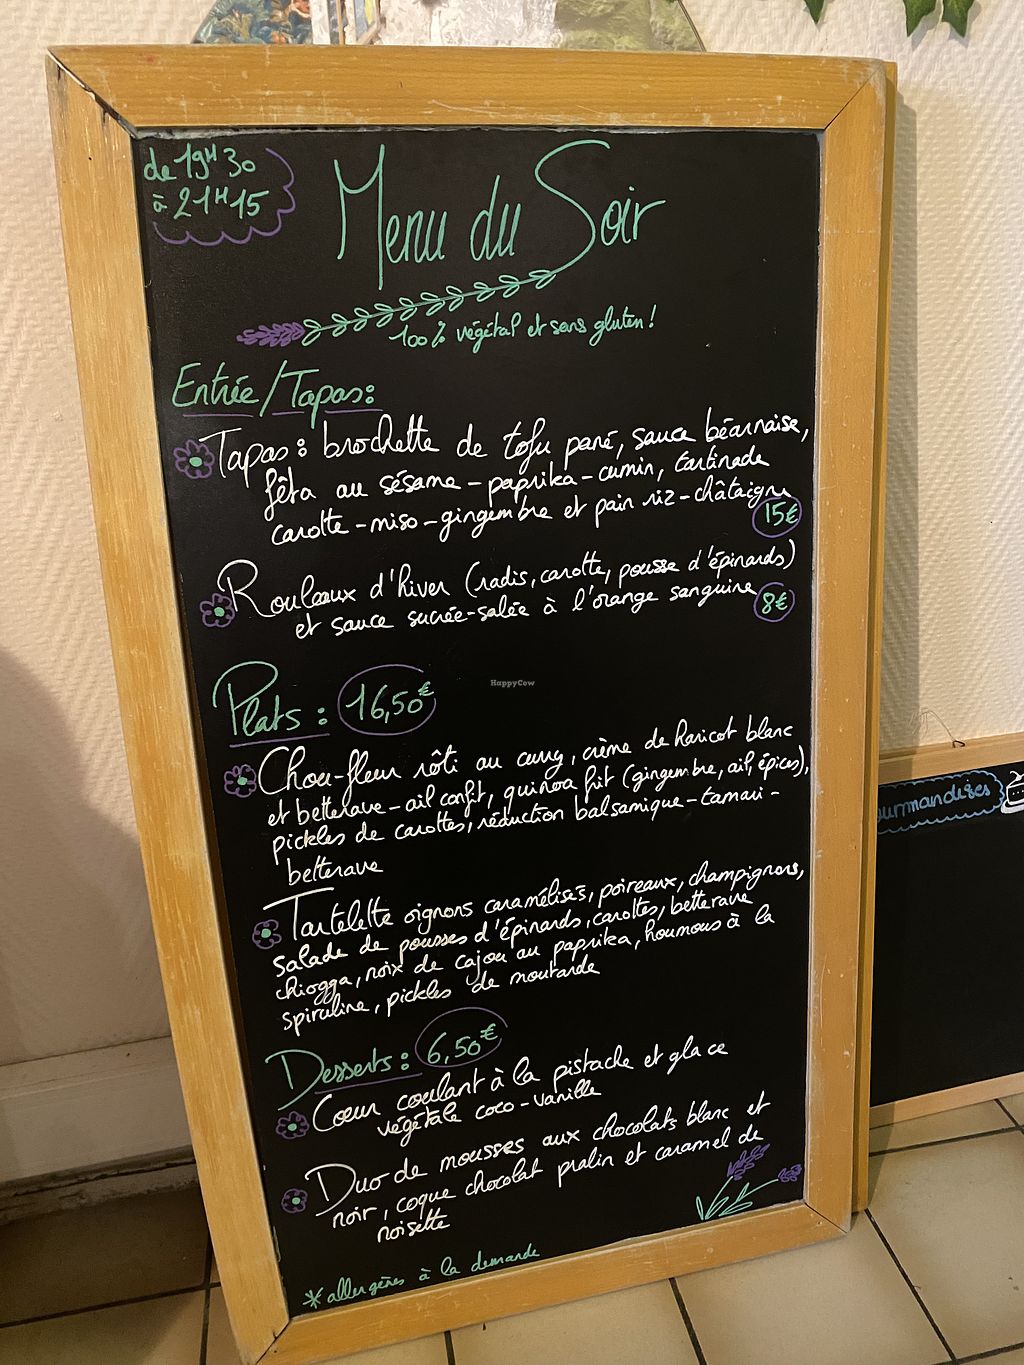 de 19H30
à 21H15
Menu du Soir
100% végétal et sans gluten !
Entrée/Tapas :
Tapas : brochette de tofu pané, sauce béarnaise,
fêta au sésame - paprika - cumin, tartinade
carotte - miso - gingembre et pain riz - châtaigne
15€
Rouleaux d'hiver (radis, carotte, pousse d'épinards)
et sauce sucrée-salée à l'orange sanguine
8€
HappyCow
Plats : 16,50€
Chou-fleur rôti au curry, crème de haricot blanc
et betterave - ail confit, quinoa frit (gingembre, ail, épices),
pickles de carottes, réduction balsamique - tamari -
betterave
Tartelette oignons caramélisés, poireaux, champignons,
salade de pousses d'épinards, carottes, betterave
chiogga, noix de cajou au paprika, houmous à la
spiruline, pickles de moutarde
Desserts : 6,50€
Cœur coulant à la pistache et glace
végétale coco-vanille
Duo de mousses aux chocolats blanc et
noir, coque chocolat pralin et caramel de
noisette
*allergènes à la demande
ourmandises